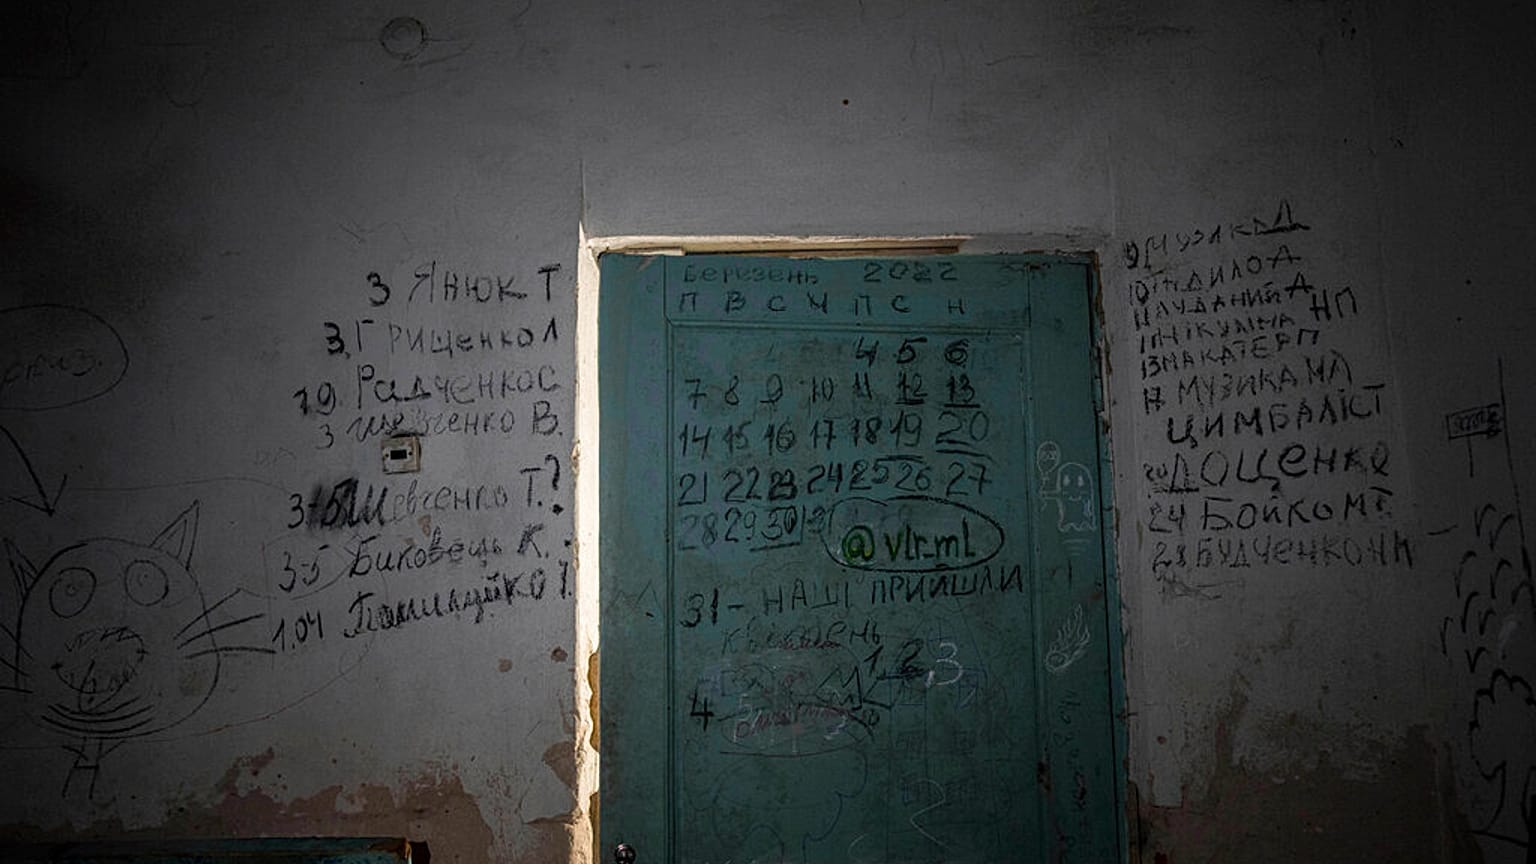 3 Янюк Т
3. Грищенко Л
19 Радченко С
3 Шевченко В.
3 Шевченко Т.?
3-5 Биковець К.
1.04
Березень 2022
П В С Ч П С Н
4 5 6
7 8 9 10 11 12 13
14 15 16 17 18 19 20
21 22 23 24 25 26 27
28 29 30 31
@vlr_ml
31 - НАШІ ПРИЙШЛИ
1, 2, 3
4
9 МУЗИКА Д
ДИЛО А
НІКУЛІНА НП
13 МАКАТЕР П
МУЗИКА МЛ
ЦИМБАЛІСТ
ДОЩЕНКО
24 БОЙКО МТ
28 БУДЧЕНКО НН